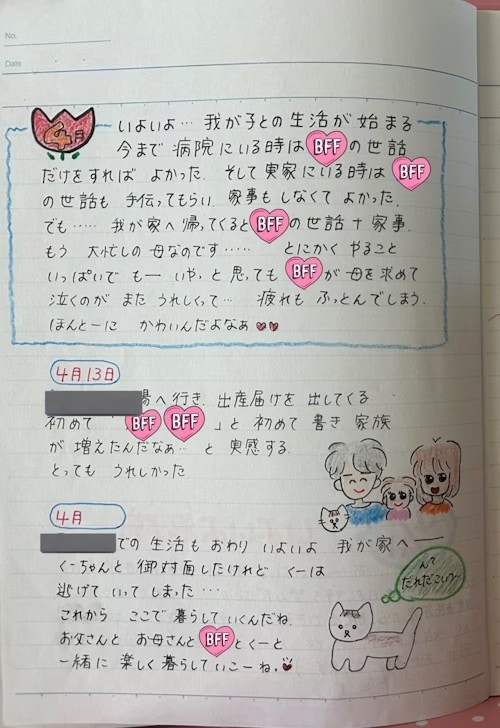 No.
Date
4月
いよいよ… 我が子との生活が始まる
今まで病院にいる時はBFFの世話
だけをすれば よかった. そして実家にいる時はBFF
の世話も 手伝ってもらい. 家事もしなくてよかった.
でも…… 我が家へ帰ってくるとBFFの世話+家事.
もう 大忙しの母なのです…… とにかく やること
いっぱいで もー いや. と思っても BFFが母を求めて
泣くのが また うれしくって… 疲れも ふっとんでしまう.
ほんとーに かわいんだよなぁ
4月13日
場へ行き. 出産届けを 出してくる
初めて「BFF BFF」と 初めて 書き 家族
が 増えたんだなぁ… と 実感する.
とっても うれしかった
4月
での 生活も おわり いよいよ 我が家へ──
くーちゃんと 御対面したけれど くーは
逃げて いって しまった…
これから ここで 暮らして いくんだね.
お父さんと お母さんと BFFと くーと
一緒に 楽しく 暮らして いこーね.
んで
だれだこいつ〜